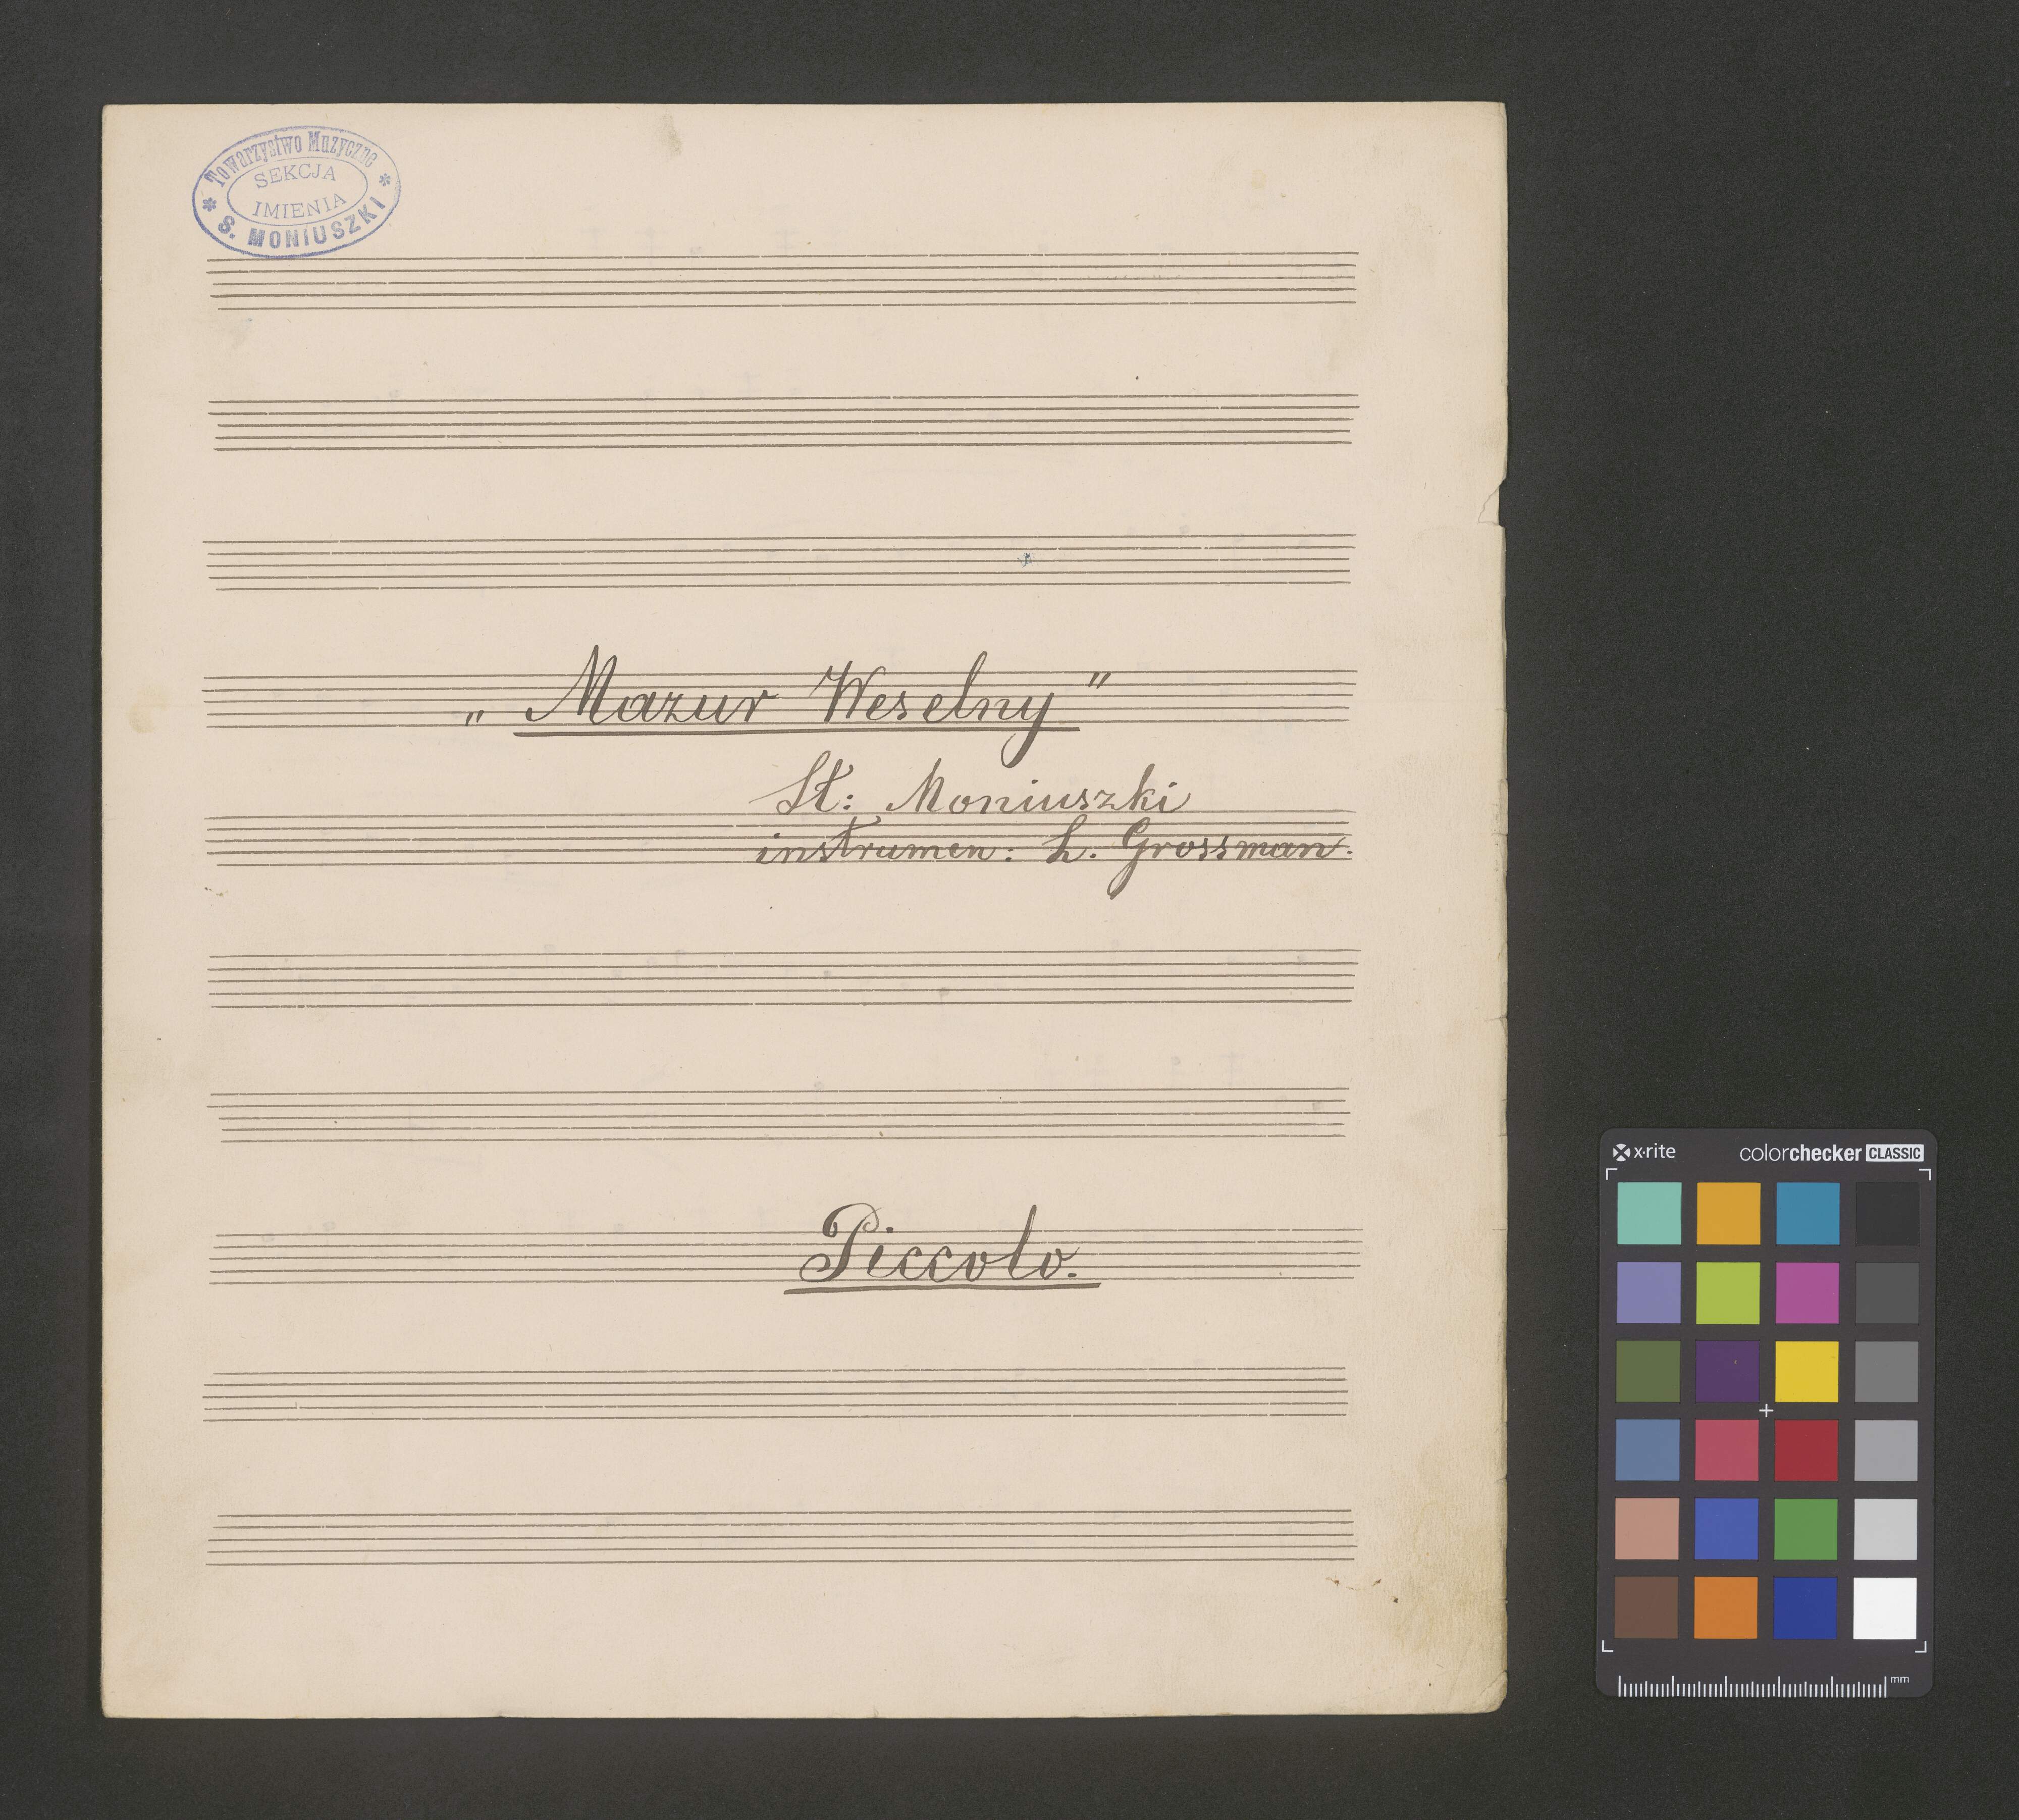 Towarzystwo Muzyczne
SEKCJA
IMIENIA
S. MONIUSZKI
„Mazur Weselny”
St: Moniuszki
instrumen: L. Grossman.
Piccolo.
x·rite colorchecker CLASSIC
mm